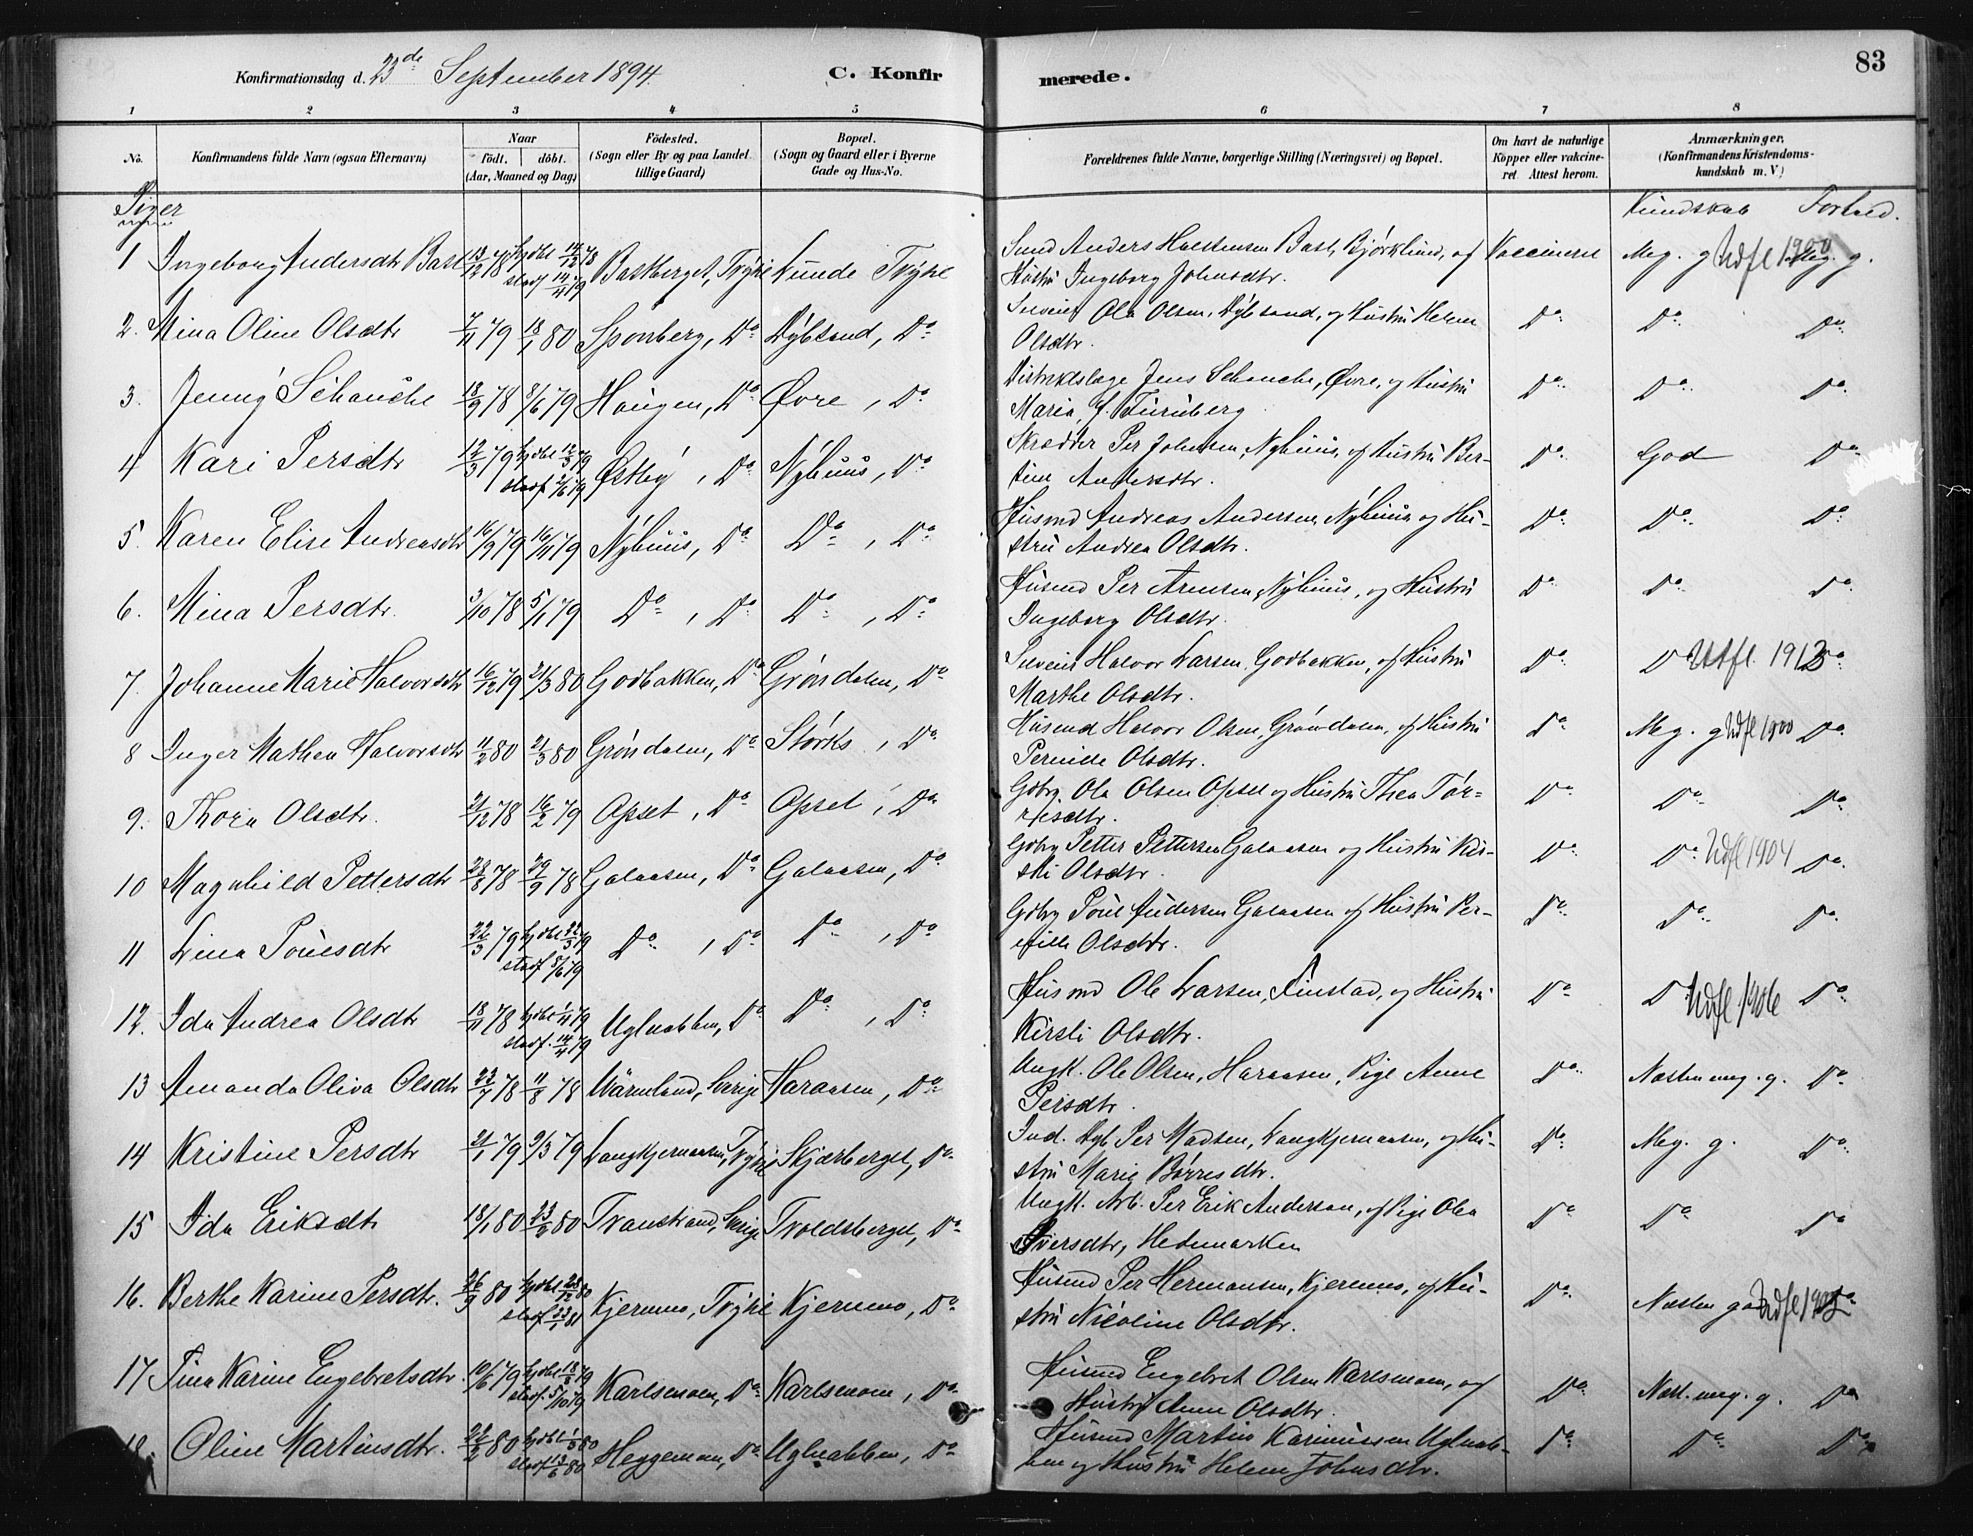 83
Konfirmationsdag d. 23de September 1894.
C. Konfirmerede.
1 2 3 4 5 6 7 8
No. Konfirmandens fulde Navn (ogsaa Efternavn) Naar født. døbt. (Aar, Maaned og Dag) Fødested. (Sogn eller By og paa Landet tillige Gaard) Bopæl. (Sogn og Gaard eller i Byerne Gade og Hus-No. Forældrenes fulde Navne, borgerlige Stilling (Næringsvei) og Bopæl. Om havt de naturlige Kopper eller vaccineret. Attest herom. Anmærkninger. (Konfirmandens Kristendomskundskab m. V.)
Piger
Kundskab Forhold.
1 Ingeborg Andersdtr Bast 13/12 78 hjdbt 14/12 78 stadf 14/4 79 Bastberget, Trysil Lunde Trysil Anders Halstensen Bast, Bjørklund, og Vaccineret Meg. g Udfl 1900 Meg. g.
Hustru Ingeborg Johnsdtr.
2. Mina Oline Olsdtr 7/11 79 18/1 80 Sponberg, Do Dybsand, Do Ola Olsen, Dybsand, og Hustru Helene Do Do Do
Olsdtr.
3. Jenny Schanche 18/9 78 8/6 79 Haugen, Do Øvre, Do Distriktslæge Jens Schanche, Øvre, og Hustru Do Do Do
Maria, f. Turnberg
4 Kari Persdtr 12/3 79 hjdbt 12/3 79 stadf 2/6 79 Østby, Do Nyhuus, Do Skrædder Per Johnsen, Nyhuus, og Hustru Ber- Do God Do
tine Andersdtr.
5. Karen Elise Andreasdtr 16/9 79 16/11 79 Nyhuus, Do Do, Do Husmd Andreas Andersen, Nyhuus, og Hu- Do Do Do
stru Andrea Olsdtr.
6. Mina Persdtr. 3/10 78 5/1 79 Do, Do Do, Do Husmd Per Arnesen, Nyhuus, og Hustru Do Do Do
Ingeborg Olsdtr.
7. Johanne Marie Halvorsdtr 16/12 79 21/3 80 Godbakken, Do Grøndalen, Do Halvor Larsen, Godbakken, og Hustru Do D Utfl. 1913 Do
Marthe Olsdtr.
8 Inger Mathea Halvorsdtr 11/2 80 21/3 80 Grøndalen, Do Størks, Do Husmd Halvor Olsen, Grøndalen, og Hustru Do Meg. g Udfl 1900 Do
Pernille Olsdtr.
9. Thora Olsdtr. 21/12 78 16/2 79 Opset, Do Opset, Do Gdbr. Ola Olsen Opset og Hustru Thea Tør- Do Do Do
risdtr.
10 Magnhild Pettersdtr 28/8 78 29/9 78 Galaasen, Do Galaasen, Do Gdbr Petter Pettersen Galaasen og Hustru Kir- Do Do Udfl 1904 Do
sti Olsdtr.
11 Lina Pouelsdtr 22/3 79 hjdbt 22/3 79 stadf 8/6 79 Do, Do Do, Do Gdbr Pouel Andersen Galaasen og Hustru Per- Do Do Do
nille Olsdtr.
12. Ida Andrea Olsdtr 18/11 78 hjdbt 1/4 79 stadf. 14/4 79 Uglnabben, Do Do, Do Husmd Ole Larsen, Finstad, og Hustru Do D Udfl 1906 Do
Kirsti Olsdtr.
13 Amanda Oliva Olsdtr 23/7 78 11/8 78 Värmland, Sverige Haraasen, Do Ungk. Ole Olsen, Haraasen, Pige Anne Do Næsten meg. g. Do
Persdtr.
14 Kristine Persdtr 21/1 79 9/3 79 Langkjernaasen, Trysil Skjærberget, Do Ind. Per Madsen, Langkjernaasen, og Hu- Do Meg. g. Do
stru Marie Børresdtr.
15 Ida Eriksdtr 18/1 80 23/2 80 Transtrand, Sverige Tvoldsberget, Do Ungk. Arb. Per Erik Anderson, og Pige Olea Do Do Do
Iversdtr, Hedemarken
16. Berthe Karine Persdtr. 26/9 80 hjdbt 28/12 80 stadf 23/1 81 Kjernmo, Trysil Kjernmo, Do Husmd Per Hermansen, Kjernmo, og Hu- Do Næsten god Udfl Do
stru Nicoline Olsdtr.
17 Tina Karine Engebretsdtr. 10/6 79 hjdbt 18/8 79 stadf. 5/10 79 Karlsmoen, Do Karlsmoen, Do Husmd Engebret Olsen Karlsmoen, og Do Næst. meg. g. Do
Hustru Anne Olsdtr.
18. Oline Martinusdtr. 22/2 80 hjdbt 1/3 80 stadf 13/6 80 Heggemoen, Do Uglnabben, Do Husmd Martin Karinussen Uglnab- Do Do Do
ben og Hustru Helene Johnsdtr.